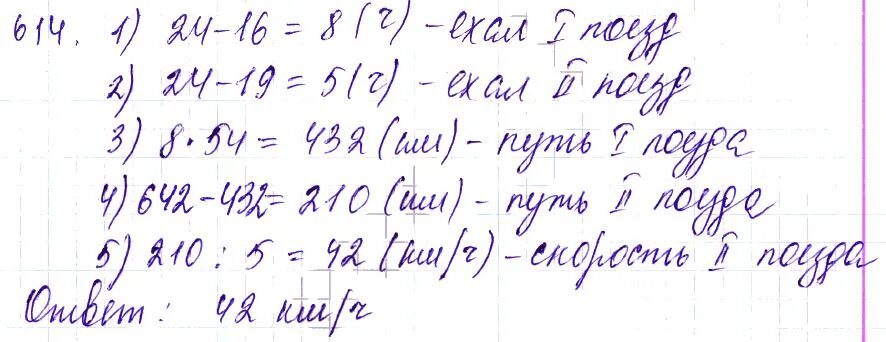 614. 1) 24-16 = 8 (ч) - ехал I поезд
2) 24-19 = 5 (ч) - ехал II поезд
3) 8·54 = 432 (км) - путь I поезда
4) 642-432 = 210 (км) - путь II поезда
5) 210 : 5 = 42 (км/ч) - скорость II поезда
Ответ: 42 км/ч